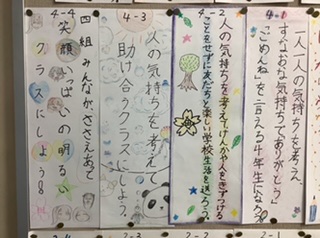 4-1
一人一人の気持ちを考え、
すなおな気持ちで「ありがとう」
「ごめんね」を言える4年生になろう
4-2
人の気持ちを考えてけんかや人をきずつける
ことをせずに友だちと楽しい学校生活を送ろう。
4-3
人の気持ちを考えて
助け合うクラスにしよう。
4-4
四組みんながささえあって
笑顔いっぱいの明るい
クラスにしよう
2-4
2-3
2-2
2-1